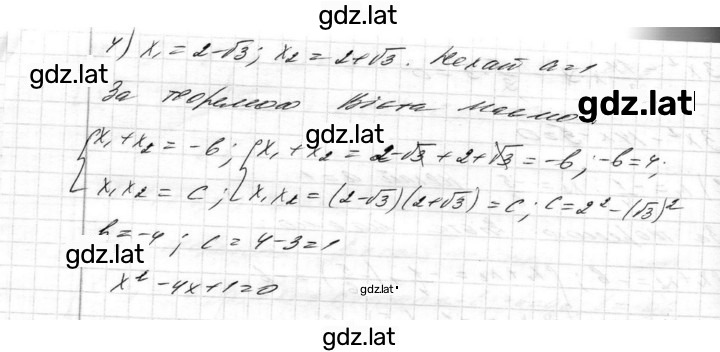 gdz.lat
4) x₁ = 2-√3; x₂ = 2+√3. Нехай a=1
gdz.lat
За теоремою Вієта маємо: gdz.lat
gdz.lat
{x₁+x₂ = -b; {x₁+x₂ = 2-√3+2+√3 = -b; -b=4;
x₁x₂ = c; x₁x₂ = (2-√3)(2+√3) = c; c=2²-(√3)²
b=-4; c=4-3=1
gdz.lat
x²-4x+1=0 gdz.lat
gdz.lat